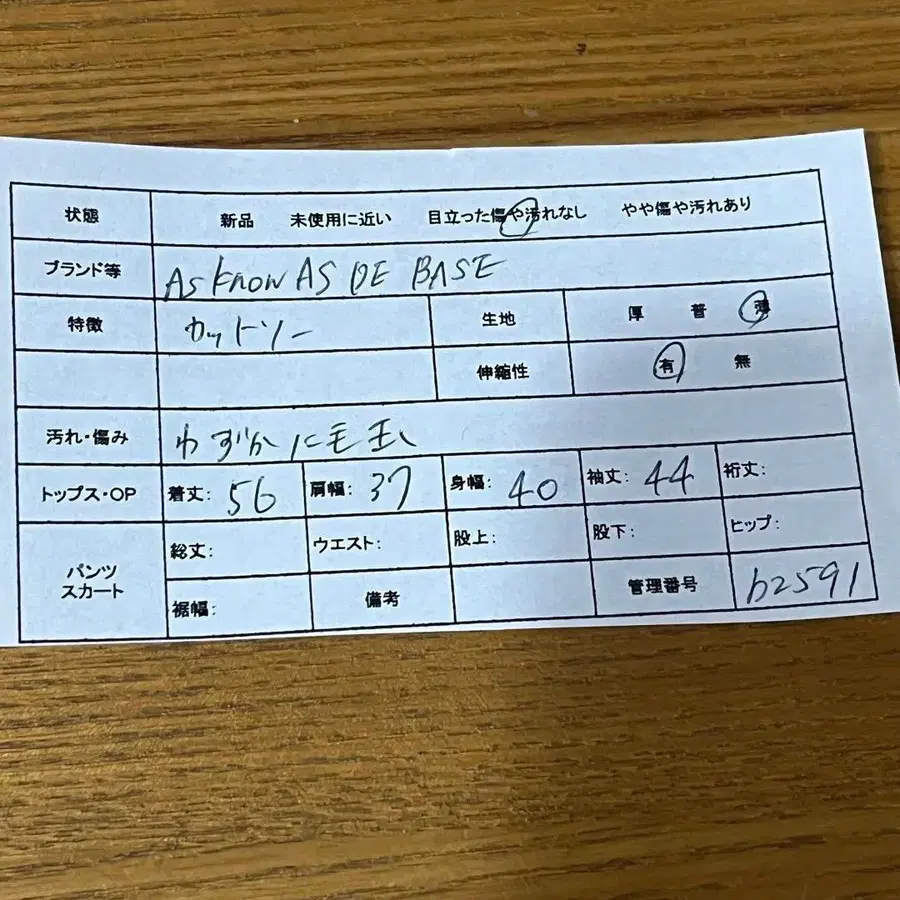 状態 新品 未使用に近い 目立った傷や汚れなし やや傷や汚れあり
ブランド等 AS KNOW AS DE BASE
特徴 カットソー 生地 厚 普 薄
伸縮性 有 無
汚れ・傷み わずかに毛玉
トップス・OP 着丈: 56 肩幅: 37 身幅: 40 袖丈: 44 裄丈:
パンツ スカート 総丈: ウエスト: 股上: 股下: ヒップ:
裾幅: 備考 管理番号 b2591